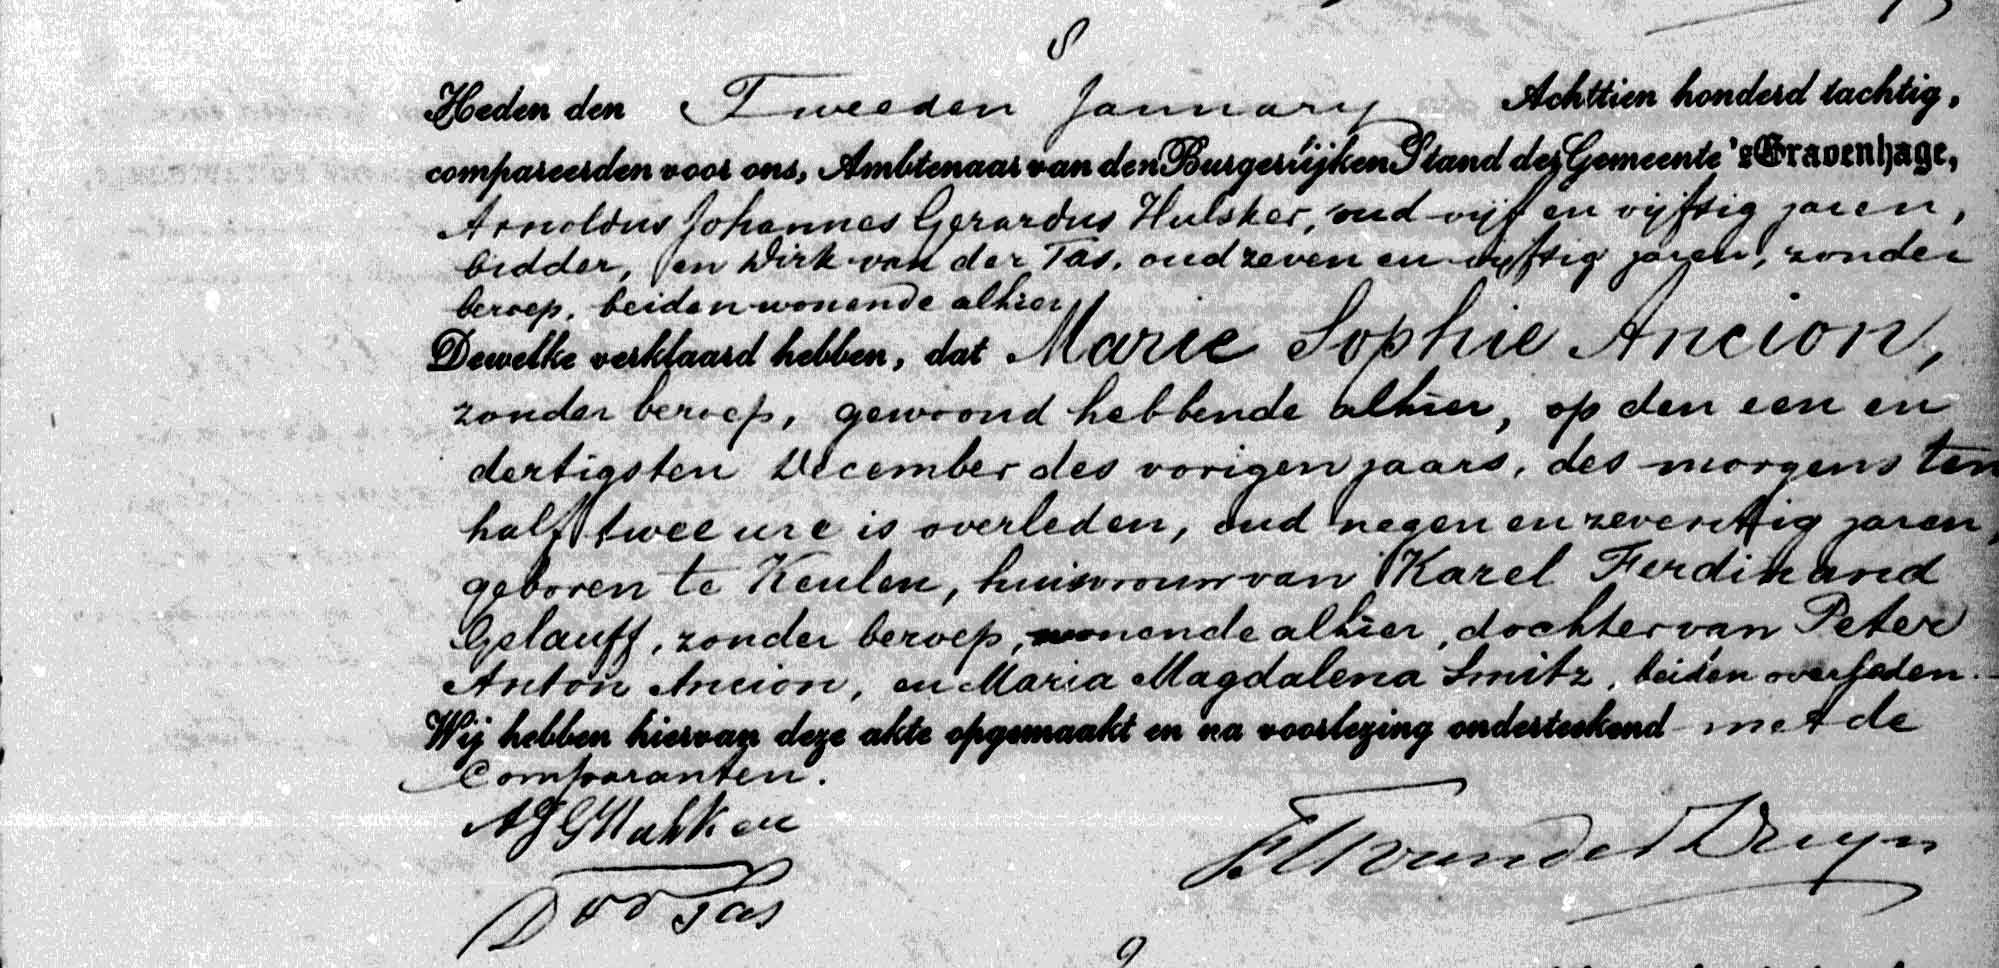 8
Heden den Tweeden January Achttien honderd tachtig,
compareerden voor ons, Ambtenaar van den Burgerlijken Stand der Gemeente 's Gravenhage,
Arnoldus Johannes Gerardus Hulsker, oud vijf en vijftig jaren,
bidder, en Dirk van der Tas, oud zeven en vijftig jaren, zonder
beroep, beiden wonende alhier
Dewelke verklaard hebben, dat Marie Sophie Ancion,
zonder beroep, gewoond hebbende alhier, op den een en
dertigsten December des vorigen jaars, des morgens ten
half twee ure is overleden, oud negen en zeventig jaren,
geboren te Keulen, huisvrouw van Karel Ferdinand
Gelauff, zonder beroep, wonende alhier, dochter van Peter
Anton Ancion, en Maria Magdalena Smitz, beiden overleden.
Wij hebben hiervan deze akte opgemaakt en na voorlezing onderteekend met de
Comparanten.
AJGHulsker
van der Duyn
D vd Tas
9